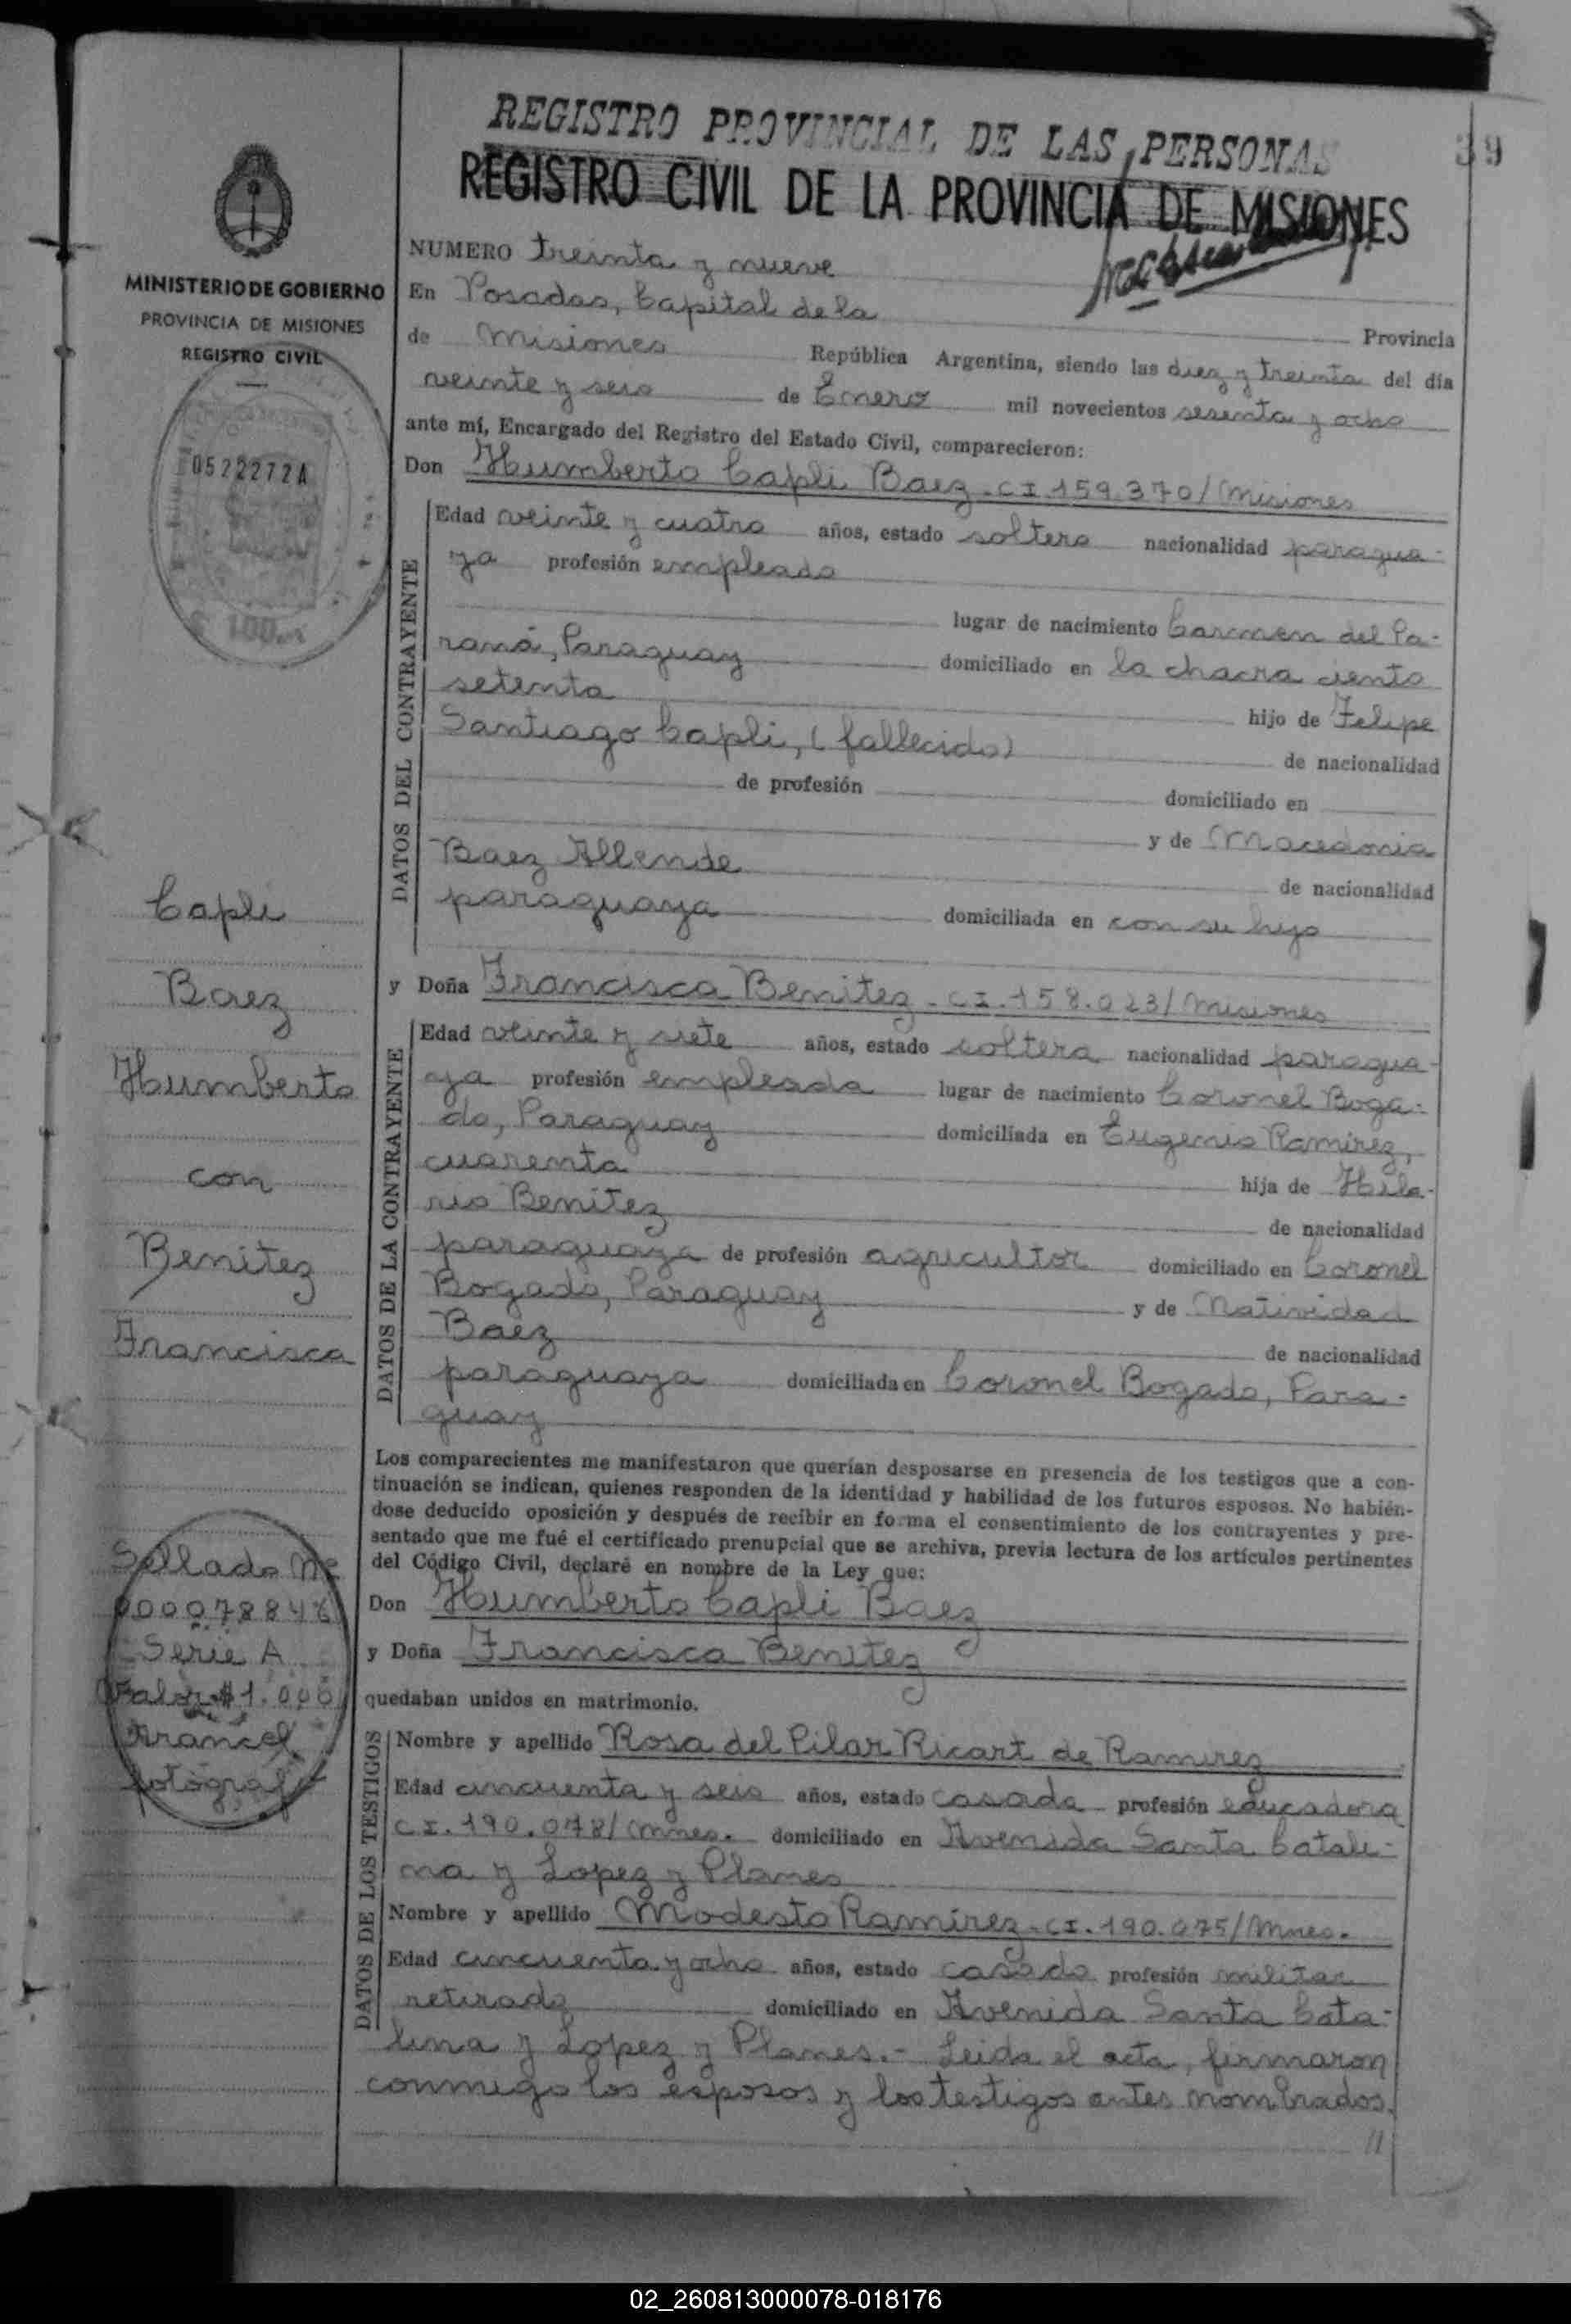 REGISTRO PROVINCIAL DE LAS PERSONAS
39
REGISTRO CIVIL DE LA PROVINCIA DE MISIONES
MINISTERIO DE GOBIERNO
PROVINCIA DE MISIONES
REGISTRO CIVIL
0522272A
100
NUMERO treinta y nueve
En Posadas, Capital de la Provincia
de Misiones República Argentina, siendo las diez y treinta del día
veinte y seis de Enero mil novecientos sesenta y ocho
ante mí, Encargado del Registro del Estado Civil, comparecieron:
Don Humberto Capli Baez - CI. 159.370/Misiones
DATOS DEL CONTRAYENTE
Edad veinte y cuatro años, estado soltero nacionalidad paragua-
ya profesión empleado
lugar de nacimiento Carmen del Pa-
raná, Paraguay domiciliado en la chacra ciento
setenta hijo de Felipe
Santiago Capli, (fallecido) de nacionalidad
de profesión domiciliado en
y de Macedonia
Baez Allende de nacionalidad
paraguaya domiciliada en con su hijo
y Doña Francisca Benitez - CI. 158.023/Misiones
DATOS DE LA CONTRAYENTE
Edad veinte y siete años, estado soltera nacionalidad paragua-
ya profesión empleada lugar de nacimiento Coronel Boga-
do, Paraguay domiciliada en Eugenio Ramirez,
cuarenta hija de Hila-
rio Benitez de nacionalidad
paraguaya de profesión agricultor domiciliado en Coronel
Bogado, Paraguay y de Natividad
Baez de nacionalidad
paraguaya domiciliada en Coronel Bogado, Para-
guay
Capli
Baez
Humberto
con
Benitez
Francisca
Los comparecientes me manifestaron que querían desposarse en presencia de los testigos que a con-
tinuación se indican, quienes responden de la identidad y habilidad de los futuros esposos. No habién-
dose deducido oposición y después de recibir en forma el consentimiento de los contrayentes y pre-
sentado que me fué el certificado prenupcial que se archiva, previa lectura de los artículos pertinentes
del Código Civil, declaré en nombre de la Ley que:
Don Humberto Capli Baez
y Doña Francisca Benitez
quedaban unidos en matrimonio.
Sellado Nº
000078846
Serie A
Valor $1.000
Arancel
fotograf
DATOS DE LOS TESTIGOS
Nombre y apellido Rosa del Pilar Ricart de Ramirez
Edad cincuenta y seis años, estado casada profesión educadora
CI. 190.078/Mnes. domiciliado en Avenida Santa Catali-
na y Lopez y Planes
Nombre y apellido Modesto Ramírez - CI. 190.075/Mnes.
Edad cincuenta y ocho años, estado casado profesión militar
retirado domiciliado en Avenida Santa Cata-
lina y Lopez y Planes.- Leida el acta, firmaron
conmigo los esposos y los testigos antes nombrados.
02_260813000078-018176